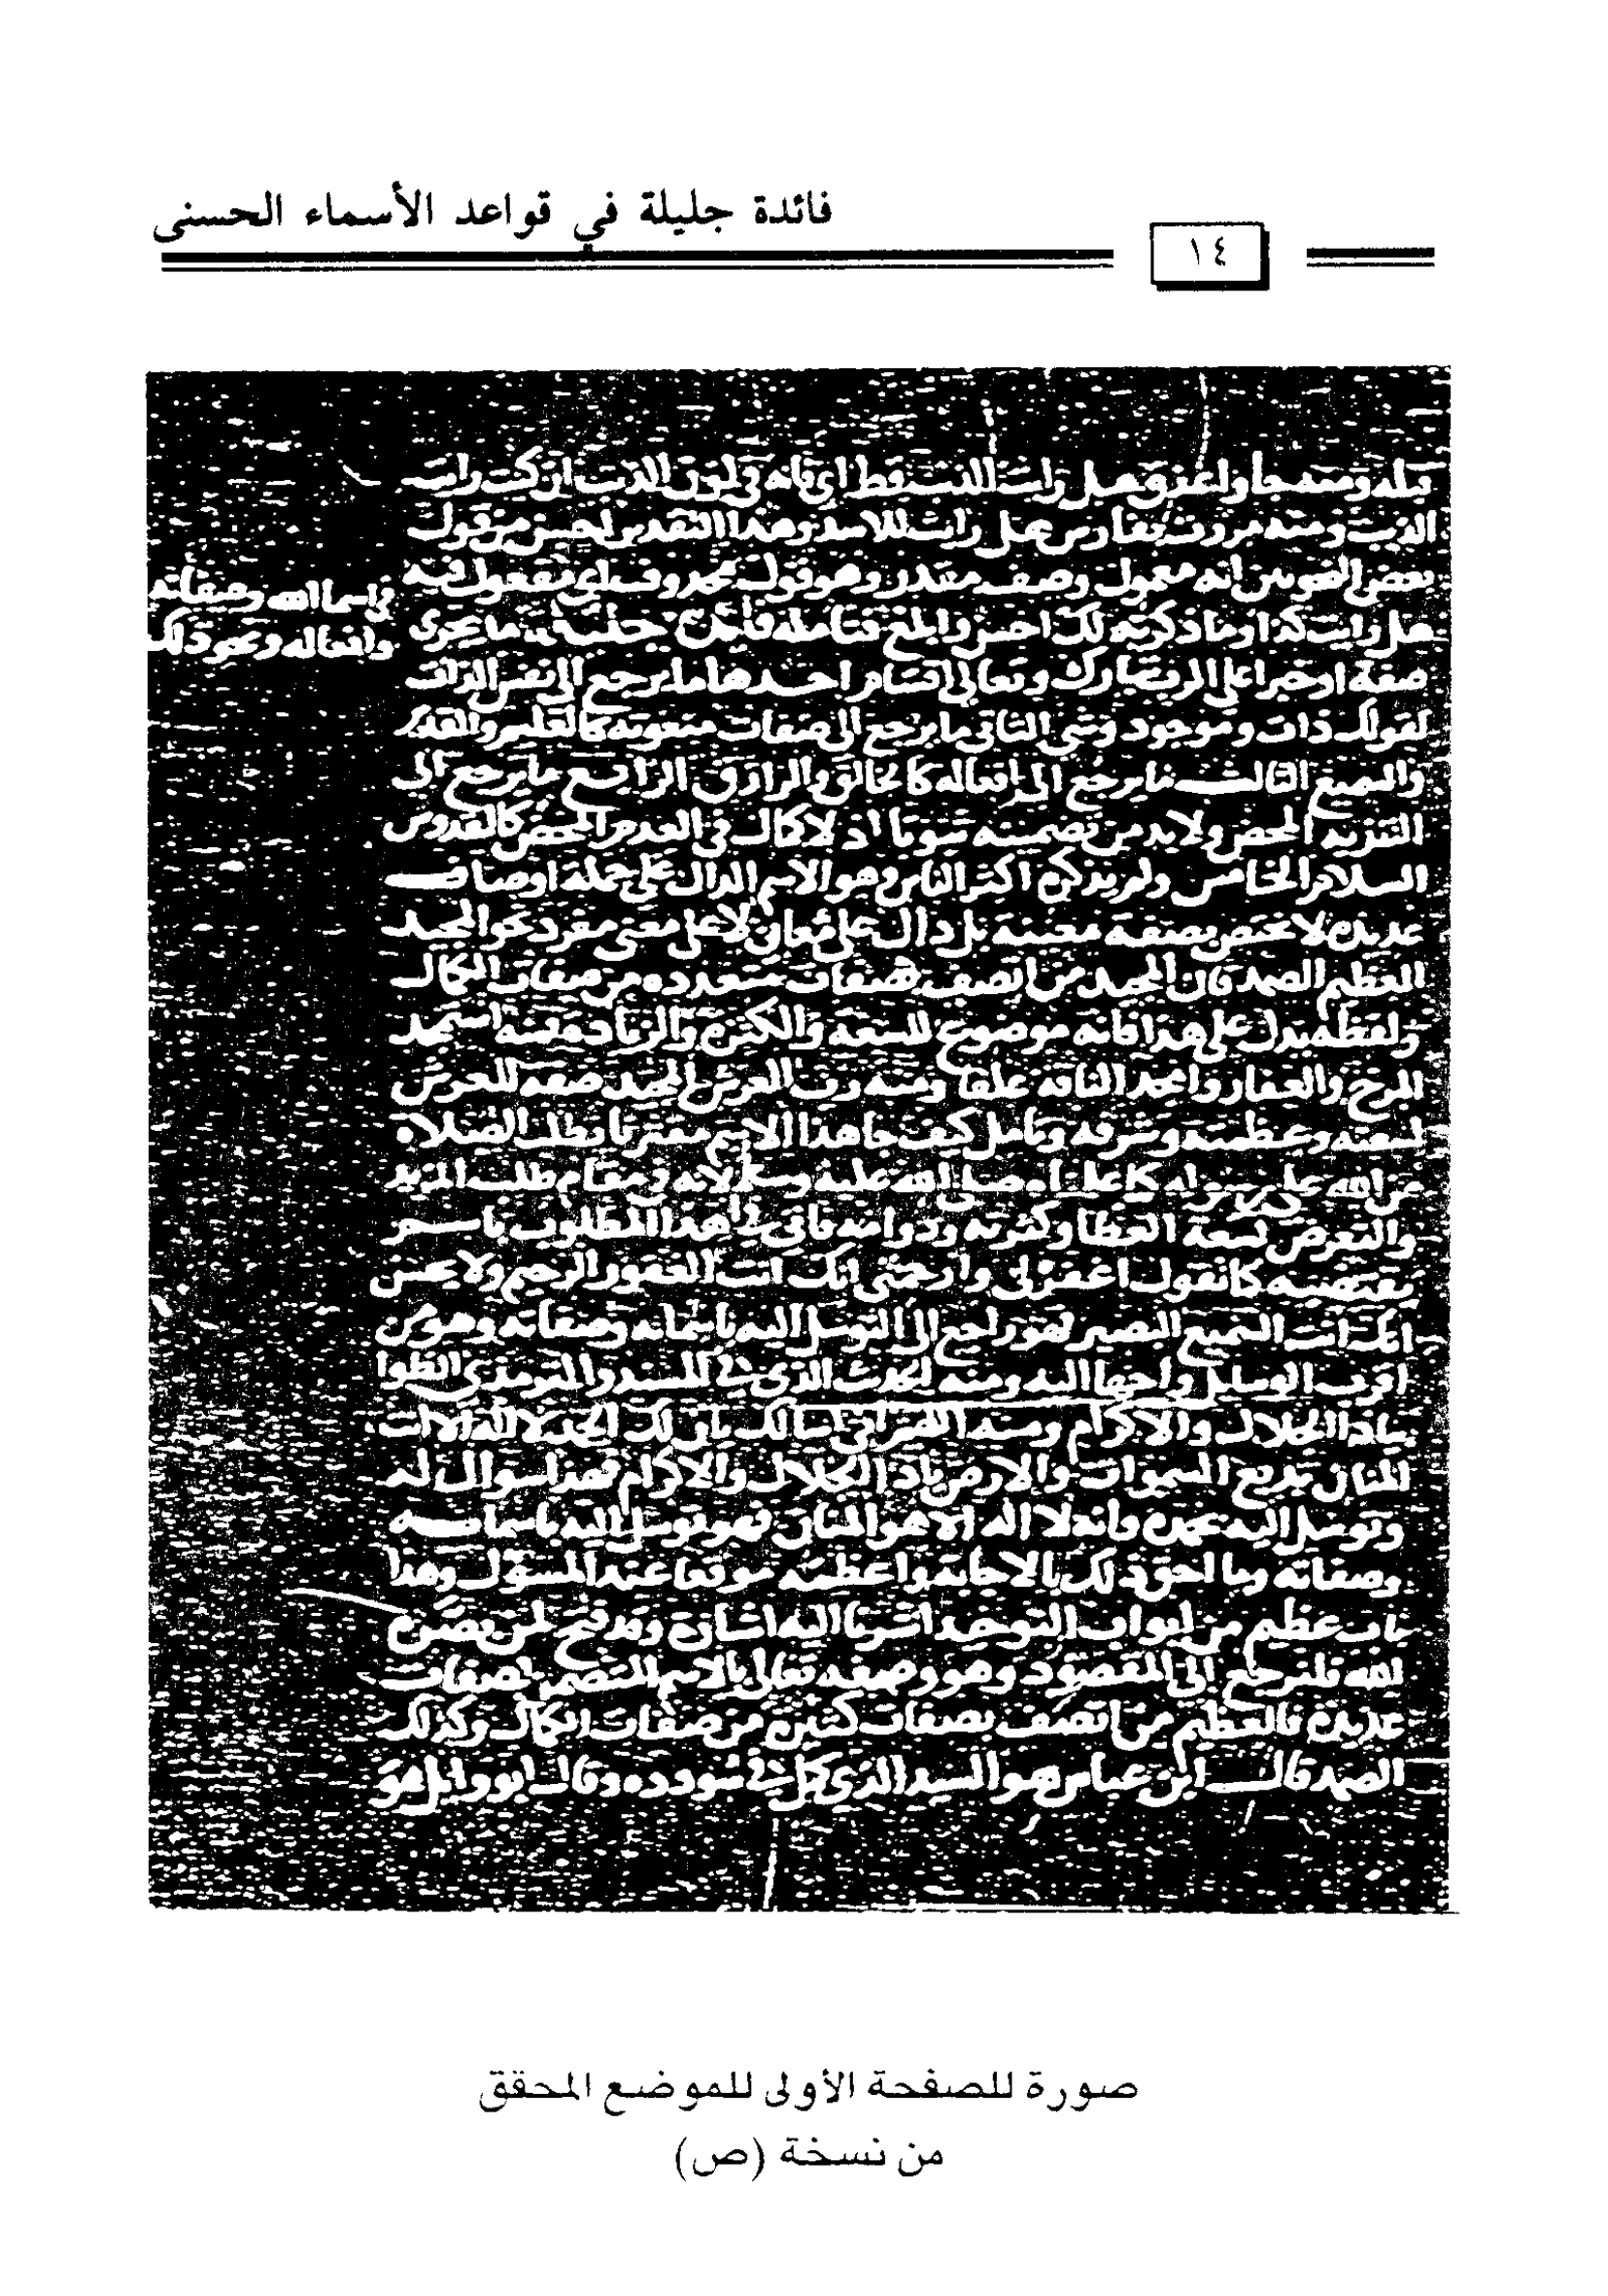 فائدة جليلة في قواعد الأسماء الحسنى
١٤
قبله ومنه جاوا بمذق هل رايت الذئب قط اي فانه في لون الذئب ان كنت رايت
الذيب ومنه مررت بفارس هل رايت الاسد وهذا التقدير احسن من قول
بعض النحويين انه معمول وصف مقدر وهو قول محذوف اي مقول فيه
هل رايت كذا وما ذكرته لك احسن وابلغ فتامله فايدة جليلة ما يجري
في اسما الله وصفاته
وافعاله ونحو ذلك
صفة او خبرا على الرب تبارك وتعالى اقسام احدها ما يرجع الى نفس الذات
كقولك ذات وموجود وشي الثاني ما يرجع الى صفات معنويه كالعليم والقدير
والسميع الثالث ما يرجع الى افعاله كالخالق والرازق الرابع ما يرجع الى
التنزيه المحض ولا بد من تضمنه ثبوتا اذ لا كمال في العدم المحض كالقدوس
السلام الخامس ولم يذكره اكثر الناس وهو الاسم الدال على جملة اوصاف
عديده لا تختص بصفة معينة بل دال على معان لا على معنى مفرد نحو المجيد
العظيم الصمد فان المجيد من اتصف بصفات متعدده من صفات الكمال
ولفظه يدل على هذا فانه موضوع للسعة والكثرة والزيادة فمنه استمجد
المرخ والعفار وامجد الناقه علفا ومنه رب العرش المجيد صفه للعرش
لسعته وعظمته وشرفه وتامل كيف جا هذا الاسم مقترنا بطلب الصلاه
من الله على رسوله كما علمناه صلى الله عليه وسلم لانه في مقام طلب المزيد
والتعرض لسعة العطا وكثرته ودوامه فاتى في هذا المطلوب باسم
تقتضيه كما تقول اغفر لي وارحمني انك انت الغفور الرحيم ولا يحسن
انك انت السميع البصير فهو راجع الى التوسل اليه باسمائه وصفاته وهو من
اقرب الوسايل واحبها اليه ومنه الحديث الذي في المسند والترمذي الظوا
بياذا الجلال والاكرام ومنه اللهم اني اسالك بان لك الحمد لا اله الا انت
المنان بديع السموات والارض ياذا الجلال والاكرام فهذا سوال له
وتوسل اليه بحمده وانه لا اله الا هو المنان فهو توسل اليه باسمائه
وصفاته وما احق ذلك بالاجابة واعظمه موقعا عند المسؤل وهذا
باب عظيم من ابواب التوحيد اشرنا اليه اشارة وقد فتح لمن بصره
الله فلنرجع الى المقصود وهو وصفه تعالى بالاسم المتضمن لصفات
عديده فالعظيم من اتصف بصفات كثيرة من صفات الكمال وكذلك
الصمد قال ابن عباس هو السيد الذي كمل في سودده وقال ابو وايل هو
صورة للصفحة الأولى للموضع المحقق
من نسخة (ص)